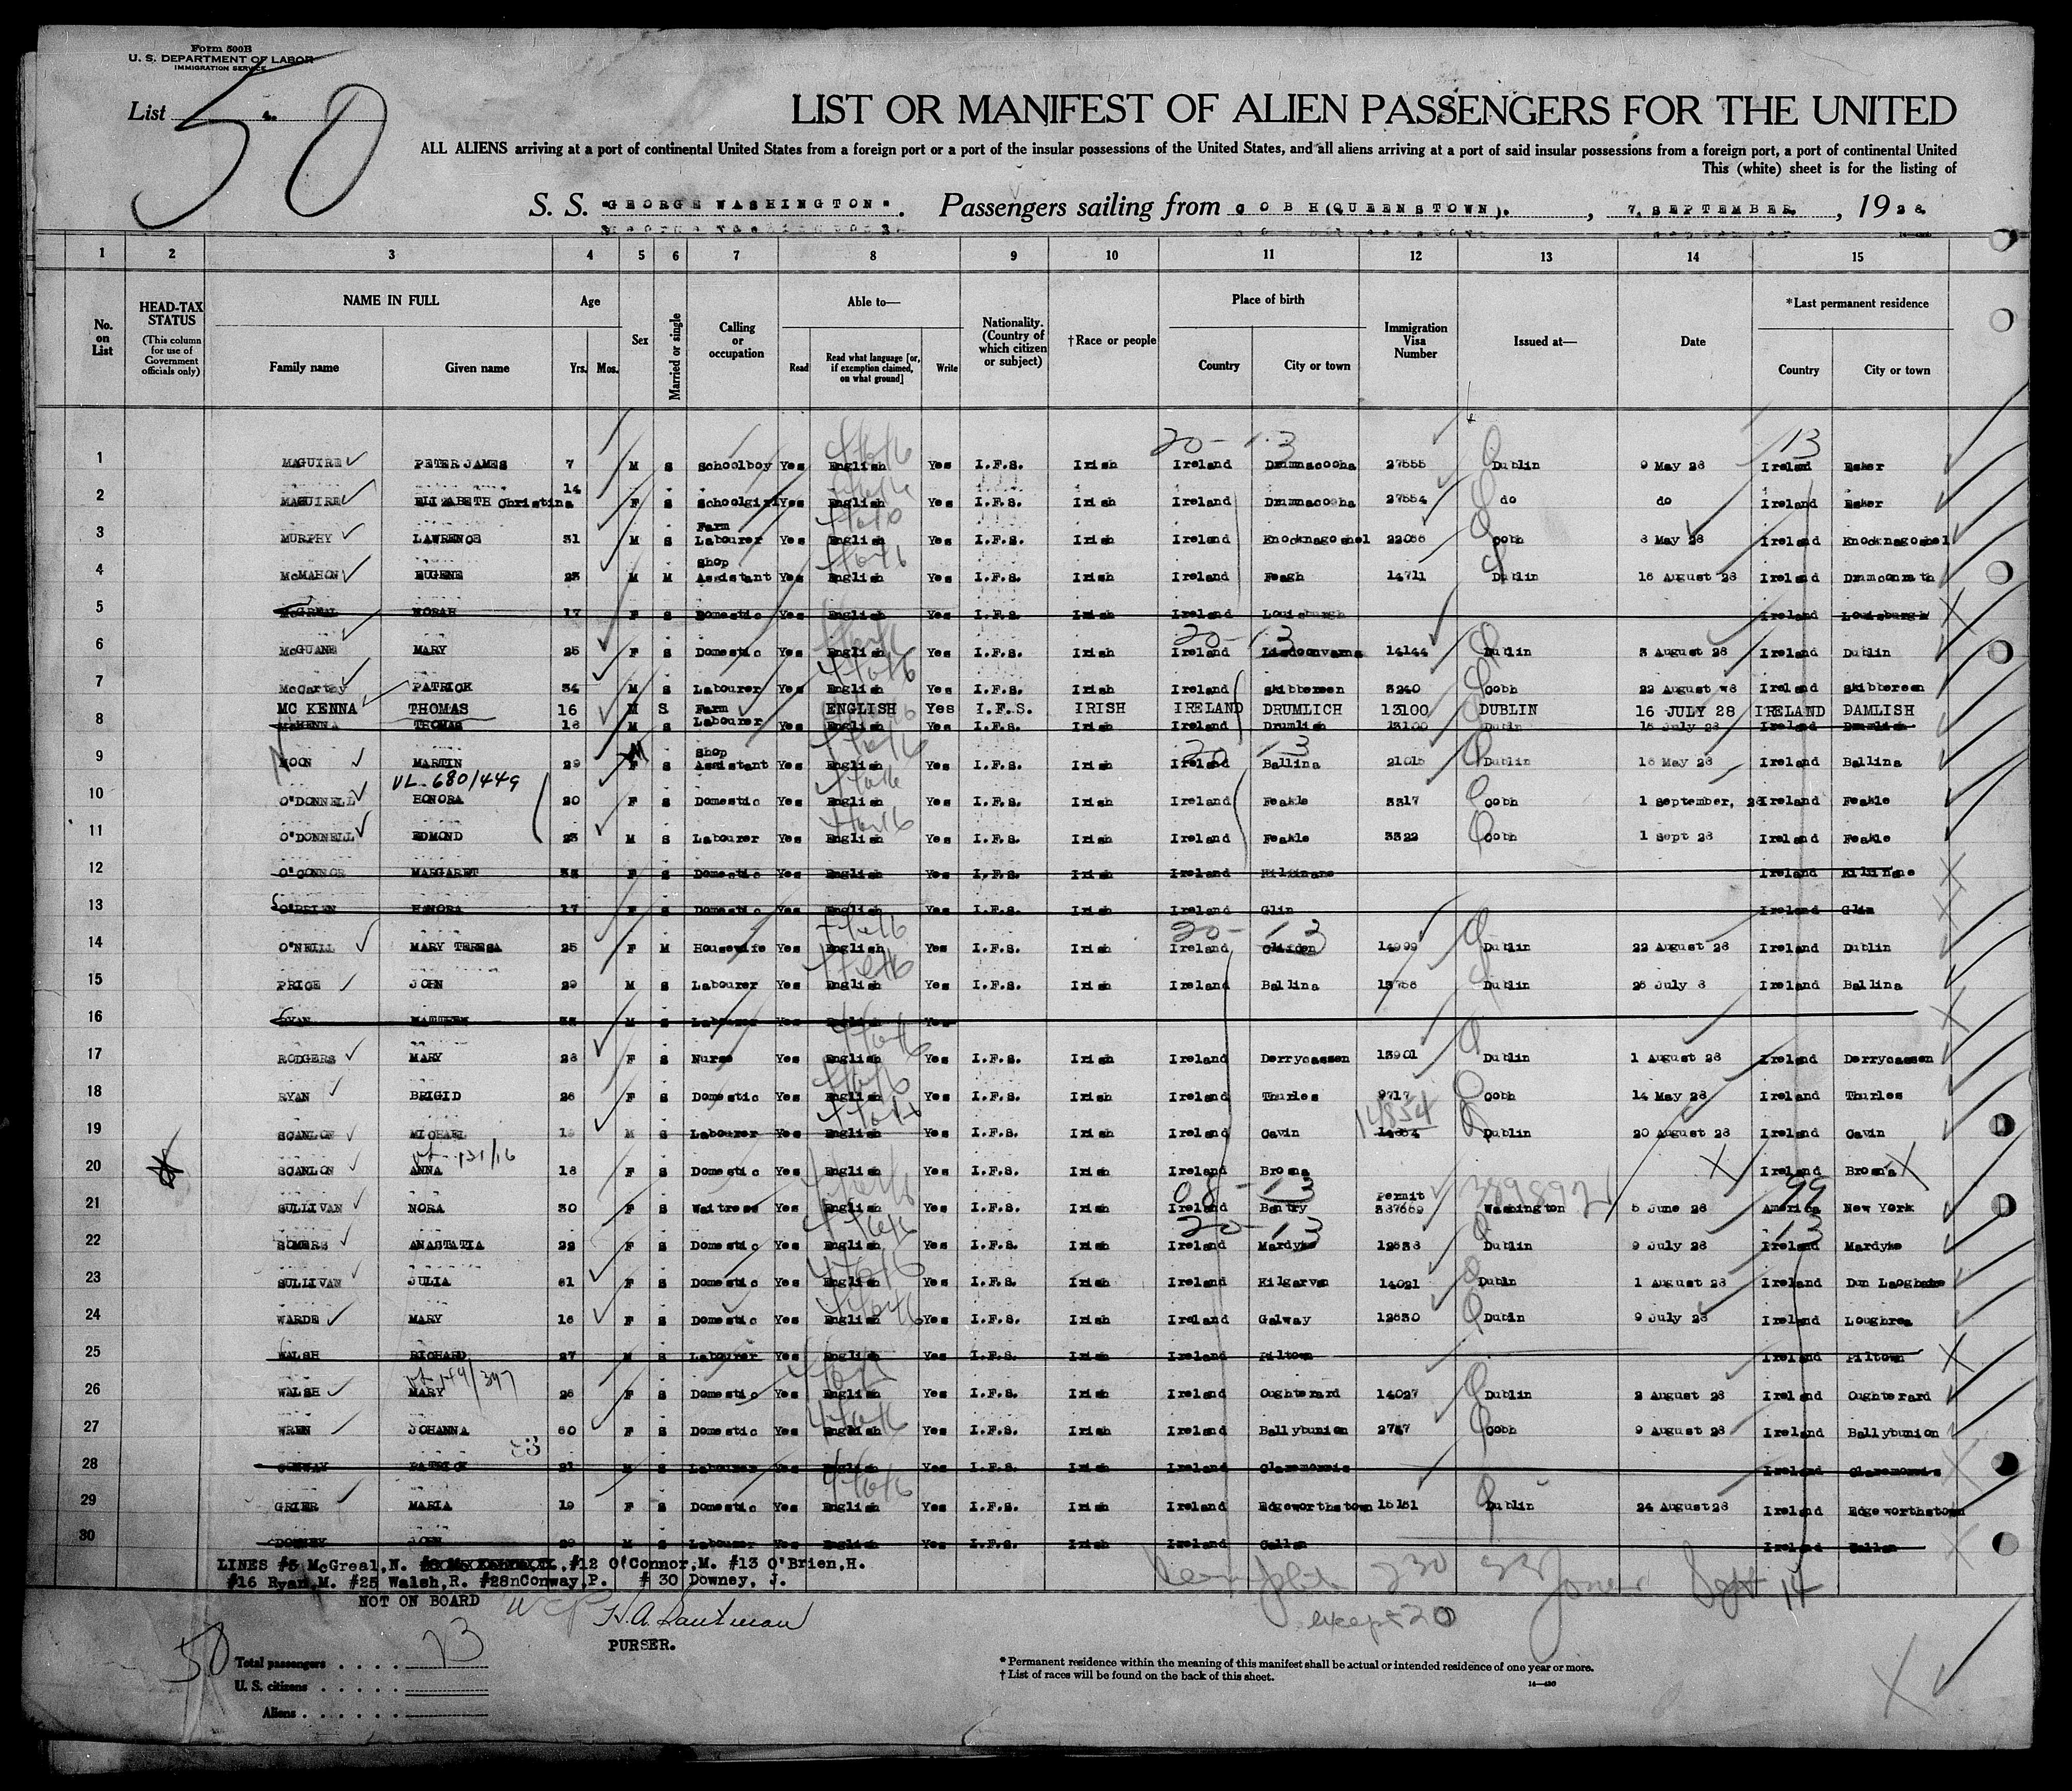 Form 500B
U. S. DEPARTMENT OF LABOR
IMMIGRATION SERVICE
List 50
LIST OR MANIFEST OF ALIEN PASSENGERS FOR THE UNITED
ALL ALIENS arriving at a port of continental United States from a foreign port or a port of the insular possessions of the United States, and all aliens arriving at a port of said insular possessions from a foreign port, a port of continental United
This (white) sheet is for the listing of
S. S. "GEORGE WASHINGTON". Passengers sailing from COBH (QUEENSTOWN). , 7. SEPTEMBER. , 1928.
1 2 3 4 5 6 7 8 9 10 11 12 13 14 15
No. on List
HEAD-TAX STATUS (This column for use of Government officials only)
NAME IN FULL Family name Given name
Age Yrs. Mos.
Sex
Married or single
Calling or occupation
Able to— Read Read what language [or, if exemption claimed, on what ground] Write
Nationality. (Country of which citizen or subject)
†Race or people
Place of birth Country City or town
Immigration Visa Number
Issued at—
Date
*Last permanent residence Country City or town
20-13 13
1 MAGUIRE PETER JAMES 7 M S Schoolboy Yes English Yes I.F.S. Irish Ireland Drumnacooha 27555 Dublin 9 May 28 Ireland Esker
2 MAGUIRE ELIZABETH Christina 14 F S Schoolgirl Yes English Yes I.F.S. Irish Ireland Drumnacooha 27554 do do Ireland Esker
3 MURPHY LAWRENCE 31 M S Farm Labourer Yes English Yes I.F.S. Irish Ireland Knocknagoshel Cobh 8 May 28 Ireland Knocknagoshel
4 McMAHON EUGENE 23 M M Shop Assistant Yes English Yes I.F.S. Irish Ireland Feagh 14711 Dublin 16 August 28 Ireland Drumconrath
5 McGREAL NORAH 17 F S Domestic Yes English Yes I.F.S. Irish Ireland Louisburgh Ireland Louisburgh
20-13
6 McGUANE MARY 25 F S Domestic Yes English Yes I.F.S. Irish Ireland Lisdoonvarna 14144 Dublin 3 August 28 Ireland Dublin
7 McCarthy PATRICK 34 M S Labourer Yes English Yes I.F.S. Irish Ireland Skibbereen 3240 Cobh 22 August w8 Ireland Skibbereen
MC KENNA THOMAS 16 M S Farm ENGLISH Yes I.F.S. IRISH IRELAND DRUMLICH 13100 DUBLIN 16 JULY 28 IRELAND DAMLISH
8 McKENNA THOMAS 16 M S Labourer Yes English Yes I.F.S. Irish Ireland Drumlish 13100 Dublin 16 July 28 Ireland Drumlish
20-13
9 MOON MARTIN 29 M S Shop Assistant Yes English Yes I.F.S. Irish Ireland Ballina 21015 Dublin 16 May 28 Ireland Ballina
VL-680/449
10 O'DONNELL HONORA 20 F S Domestic Yes English Yes I.F.S. Irish Ireland Feakle 3317 Cobh 1 September, 28 Ireland Feakle
11 O'DONNELL EDMOND 23 M S Labourer Yes English Yes I.F.S. Irish Ireland Feakle 3322 Cobh 1 Sept 28 Ireland Feakle
12 O'CONNOR MARGARET F S Domestic Yes English Yes I.F.S. Irish Ireland Kilfinane Ireland Kilfinane
13 O'BRIEN HANORA 17 F S Domestic Yes English Yes I.F.S. Irish Ireland Glin Ireland Glin
20-13
14 O'NEILL MARY TERESA 25 F M Housewife Yes English Yes I.F.S. Irish Ireland Clifden 14909 Dublin 22 August 28 Ireland Dublin
15 PRICE JOHN 29 M S Labourer Yes English Yes I.F.S. Irish Ireland Ballina 13758 Dublin 26 July 8 Ireland Ballina
16 RYAN MATTHEW M S Labourer Yes English Yes
17 RODGERS MARY 28 F S Nurse Yes English Yes I.F.S. Irish Ireland Derrycassen 13901 Dublin 1 August 28 Ireland Derrycassen
18 RYAN BRIGID 26 F S Domestic Yes English Yes I.F.S. Irish Ireland Thurles 9717 Cobh 14 May 28 Ireland Thurles
14854
19 SCANLON MICHAEL M S Labourer Yes English Yes I.F.S. Irish Ireland Cavin Dublin 20 August 28 Ireland Cavin
20 SCANLON ANNA 18 F S Domestic Yes English Yes I.F.S. Irish Ireland Brosna Ireland Brosna
08-13 99
21 SULLIVAN NORA 30 F S Waitress Yes English Yes I.F.S. Irish Ireland Bantry Permit 387669 Washington 5 June 28 America New York
20-13 13
22 SOMERS ANASTATIA 22 F S Domestic Yes English Yes I.F.S. Irish Ireland Mardyke 12538 Dublin 9 July 28 Ireland Mardyke
23 SULLIVAN JULIA 61 F S Domestic Yes English Yes I.F.S. Irish Ireland Kilgarvan 14021 Dublin 1 August 28 Ireland Dun Laoghaire
24 WARDE MARY 16 F S Domestic Yes English Yes I.F.S. Irish Ireland Galway 12530 Dublin 9 July 28 Ireland Loughrea
25 WALSH RICHARD 27 M S Labourer Yes English Yes I.F.S. Irish Ireland Piltown Ireland Piltown
26 WALSH MARY 26 F S Domestic Yes English Yes I.F.S. Irish Ireland Oughterard 14027 Dublin 2 August 28 Ireland Oughterard
27 WREN JOHANNA 60 F S Domestic Yes English Yes I.F.S. Irish Ireland Ballybunion 2747 Cobh 9 August 28 Ireland Ballybunion
28 CONWAY PATRICK 21 M S Labourer Yes English Yes I.F.S. Irish Ireland Claremorris Ireland Claremorris
29 GRIER MARIA 19 F S Domestic Yes English Yes I.F.S. Irish Ireland Edgeworthstown 15151 Dublin 24 August 28 Ireland Edgeworthstown
30 DOWNEY JOHN 20 M S Labourer Yes English Yes I.F.S. Irish Ireland Callan Ireland Callan
LINES #5 McGreal,N. #12 O'Connor,M. #13 O'Brien,H.
#16 Ryan,M. #25 Walsh,R. #28nConway,P. # 30 Downey, J.
NOT ON BOARD
Sept 14
except 20
PURSER.
50
Total passengers . . . . 23
U. S. citizens . . . . .
Aliens . . . . . .
* Permanent residence within the meaning of this manifest shall be actual or intended residence of one year or more.
† List of races will be found on the back of this sheet.
14—430